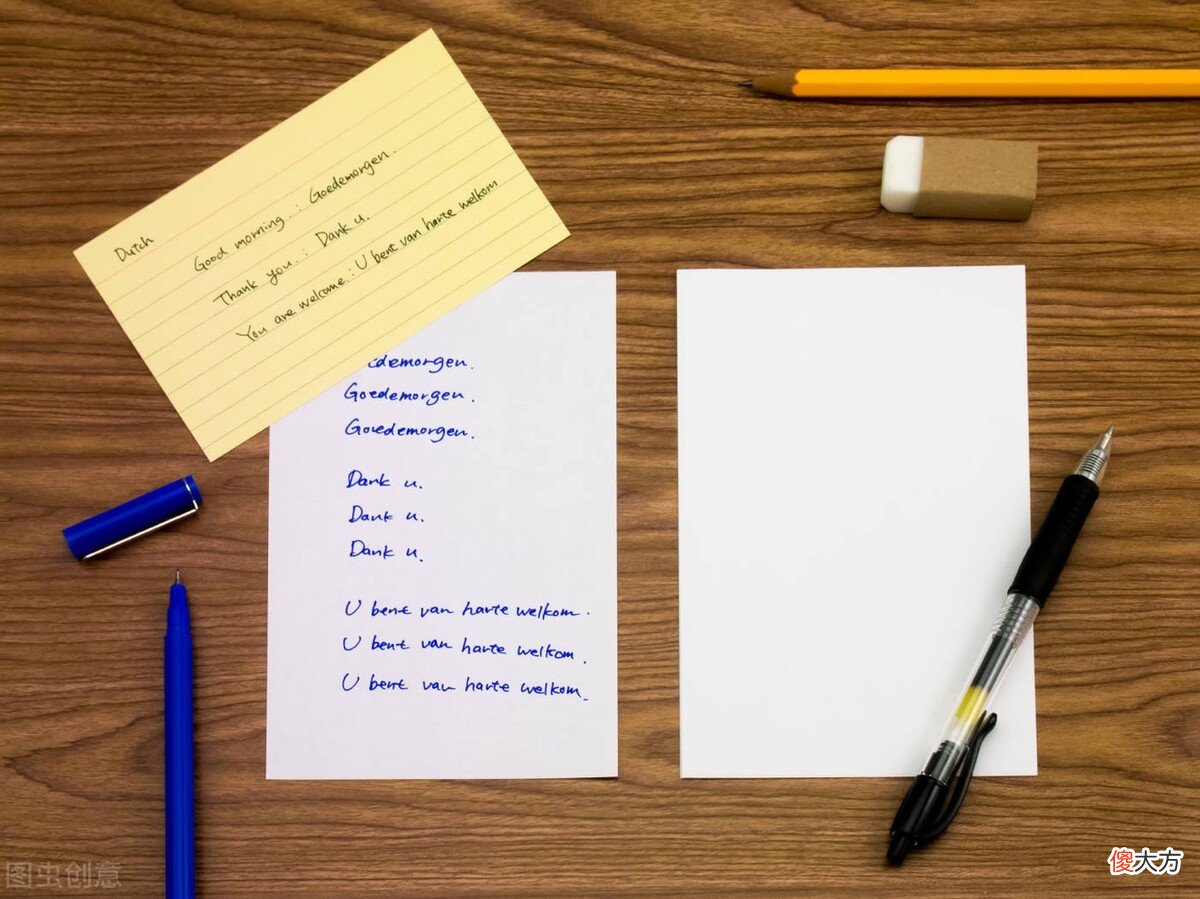 Dutch
Good morning. : Goedemorgen.
Thank you. : Dank u.
You are welcome : U bent van harte welkom
edemorgen.
Goedemorgen.
Goedemorgen.
Dank u.
Dank u.
Dank u.
U bent van harte welkom.
U bent van harte welkom.
U bent van harte welkom.
图虫创意
傻大方